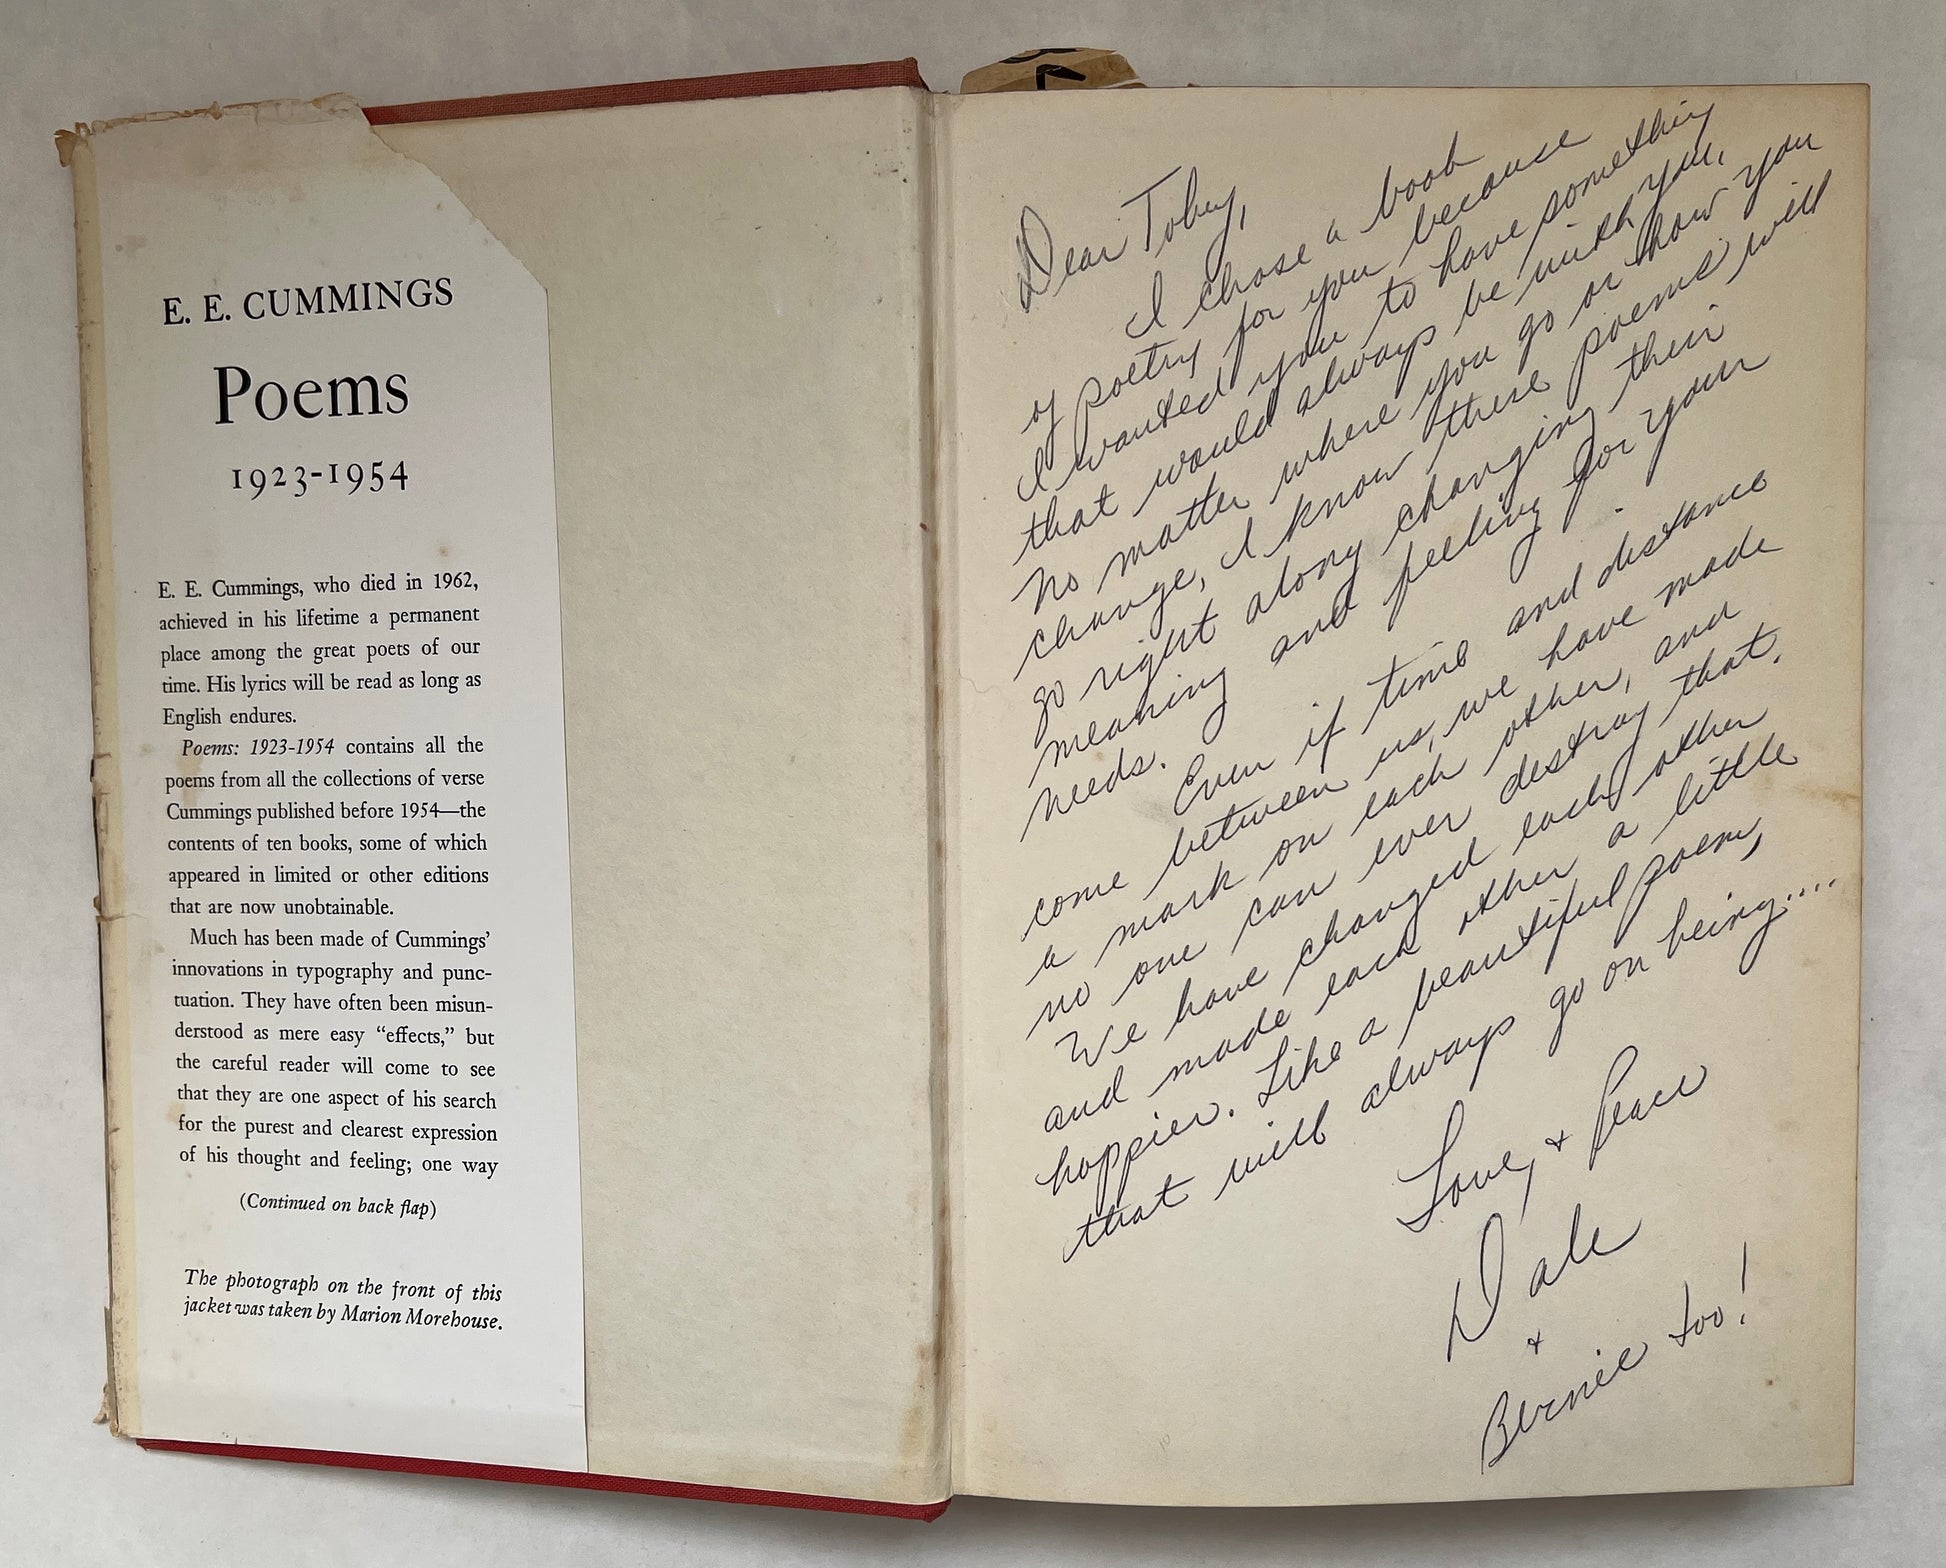 E. E. CUMMINGS
Poems
1923-1954
E. E. Cummings, who died in 1962,
achieved in his lifetime a permanent
place among the great poets of our
time. His lyrics will be read as long as
English endures.
Poems: 1923-1954 contains all the
poems from all the collections of verse
Cummings published before 1954—the
contents of ten books, some of which
appeared in limited or other editions
that are now unobtainable.
Much has been made of Cummings'
innovations in typography and punc-
tuation. They have often been misun-
derstood as mere easy “effects,” but
the careful reader will come to see
that they are one aspect of his search
for the purest and clearest expression
of his thought and feeling; one way
(Continued on back flap)
The photograph on the front of this
jacket was taken by Marion Morehouse.
Dear Toby,
I chose a book
of poetry for you because
I wanted you to have something
that would always be with you,
no matter where you go or how you
change, I know these poems will
go right along changing their
meaning and feeling for your
needs.
Even if time and distance
come between us, we have made
a mark on each other, and
no one can ever destroy that.
We have changed each other
and made each other a little
happier. Like a beautiful poem,
that will always go on being....
Love, + Peace
Dale
+
Bernie too!